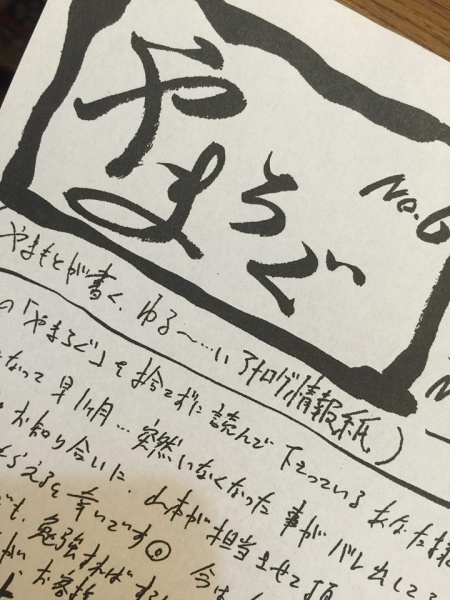 やまろぐ
No.6
やまもとが書く、ゆる〜…いアナログ情報紙)
の「やまろぐ」を捨てずに読んで下さっているあなた様
なって早1ヶ月…突然いなくなった事がバレ出して
お知り合いに、山本が担当させて頂
らえると幸いです。今は
も、勉強すれば
が お客様